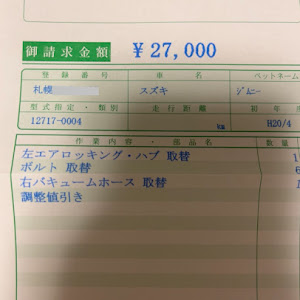 御請求金額 ¥27,000
登録番号 車名 ペットネーム
札幌 スズキ ジムニー
型式指定・類別 走行距離 初年度
12717-0004 km H20/4
作業内容・部品名 数量
左エアロッキング・ハブ 取替 1
ボルト 取替 6
右バキュームホース 取替 1
調整値引き